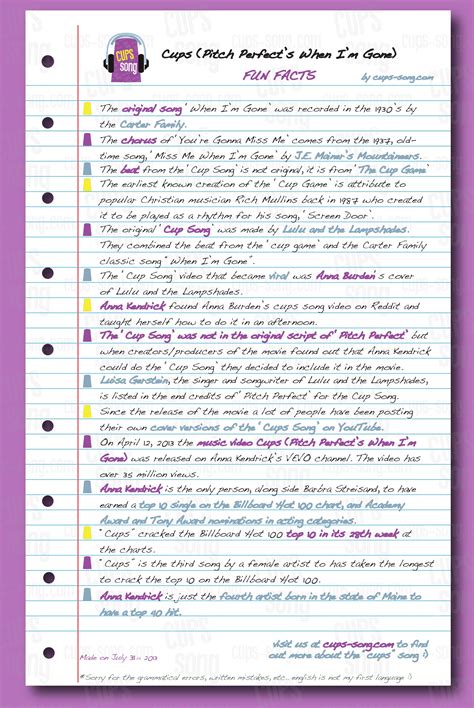 CUPS
song
Cups (Pitch Perfect's When I'm Gone)
FUN FACTS
by cups-song.com
The original song 'When I'm Gone' was recorded in the 1930's by
the Carter Family.
The chorus of 'You're Gonna Miss Me' comes from the 1937, old-
time song, 'Miss Me When I'm Gone' by J.E. Mainer's Mountaineers.
The beat from the 'Cup Song' is not original, it is from 'The Cup Game'
The earliest known creation of the 'Cup Game' is attribute to
popular Christian musician Rich Mullins back in 1987 who created
it to be played as a rhythm for his song, 'Screen Door'.
The original 'Cup Song' was made by Lulu and the Lampshades.
They combined the beat from the 'cup game' and the Carter Family
classic song "When I'm Gone".
The 'Cup Song' video that became viral was Anna Burden's cover
of Lulu and the Lampshades.
Anna Kendrick found Anna Burden's cups song video on Reddit and
taught herself how to do it in an afternoon.
The 'Cup Song' was not in the original script of 'Pitch Perfect' but
when creators/producers of the movie found out that Anna Kendrick
could do the 'Cup Song' they decided to include it in the movie.
Luisa Gerstein, the singer and songwriter of Lulu and the Lampshades,
is listed in the end credits of 'Pitch Perfect' for the Cup Song.
Since the release of the movie a lot of people have been posting
their own cover versions of the 'Cups Song' on YouTube.
On April 12, 2013 the music video Cups (Pitch Perfect's When I'm
Gone) was released on Anna Kendrick's VEVO channel. The video has
over 35 million views.
Anna Kendrick is the only person, along side Barbra Streisand, to have
earned a top 10 single on the Billboard Hot 100 chart, and Academy
Award and Tony Award nominations in acting categories.
"Cups" cracked the Billboard Hot 100 top 10 in its 28th week at
the charts.
"Cups" is the third song by a female artist to has taken the longest
to crack the top 10 on the Billboard Hot 100.
Anna Kendrick is just the fourth artist born in the state of Maine to
have a top 40 hit.
visit us at cups-song.com to find
out more about the "cups" song :)
Made on July 31st 2013
*Sorry for the grammatical errors, written mistakes, etc.. english is not my first language :)